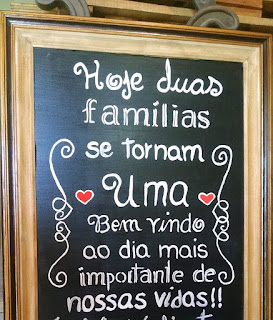 Hoje duas
famílias
se tornam
Uma
Bem vindo
ao dia mais
importante de
nossas vidas!!